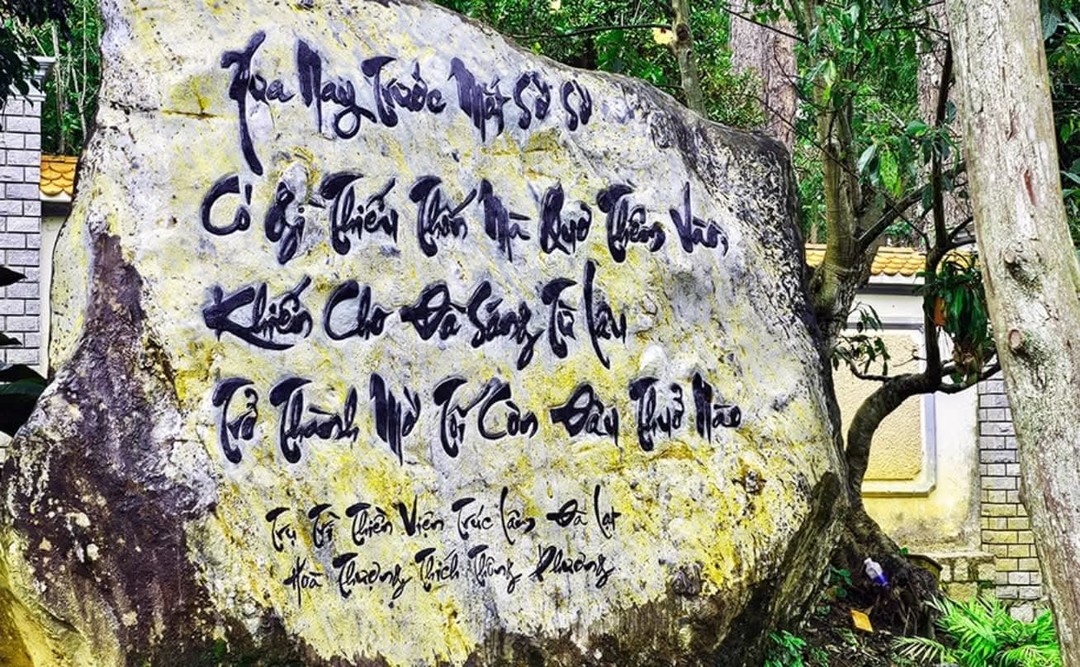 Xưa Nay Trước Mặt Sờ Sờ
Có Gì Thiếu Thốn Mà Quờ Thêm Vào
Khiến Cho Đã Sáng Từ Lâu
Trở Thành Mờ Tối Còn Đâu Thuở Nào
Trụ Trì Thiền Viện Trúc Lâm Đà Lạt
Hoà Thượng Thích Thông Phương